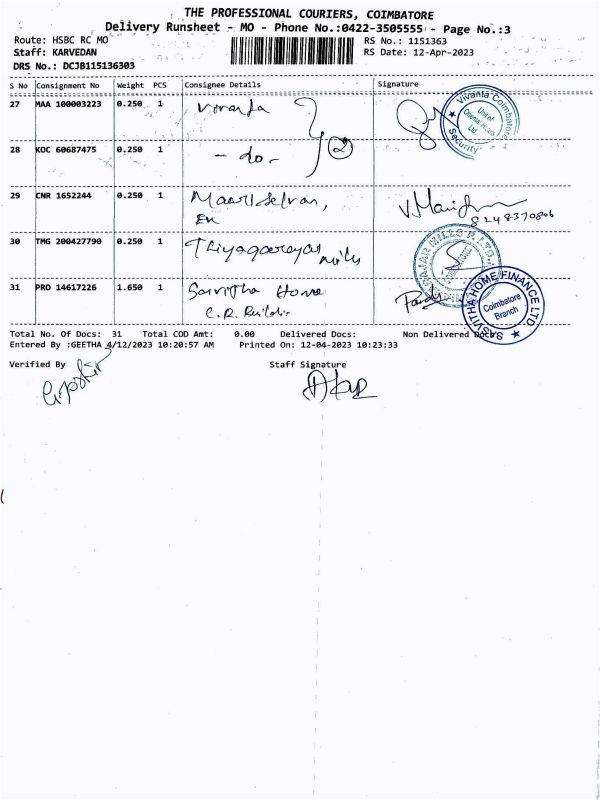 THE PROFESSIONAL COURIERS, COIMBATORE
Delivery Runsheet - MO - Phone No.:0422-3505555 - Page No.:3
Route: HSBC RC MO
RS No.: 1151363
Staff: KARVEDAN
RS Date: 12-Apr-2023
DRS No.: DCJB115136303
S No Consignment No Weight PCS Consignee Details Signature
27 MAA 100003223 0.250 1
Vivanta Coimbatore
Security
28 KOC 60687475 0.250 1 - do - 2
29 CNR 1652244 0.250 1 V. 8248370806
30 TMG 200427790 0.250 1 Thiyagarayar mills
MILLS P. LTD.
31 PRO 14617226 1.650 1 Home
C.R. 
SASVITHA HOME FINANCE LTD
Coimbatore
Branch
Total No. Of Docs: 31 Total COD Amt: 0.00 Delivered Docs: Non Delivered Docs:
Entered By :GEETHA 4/12/2023 10:20:57 AM Printed On: 12-04-2023 10:23:33
Verified By Staff Signature